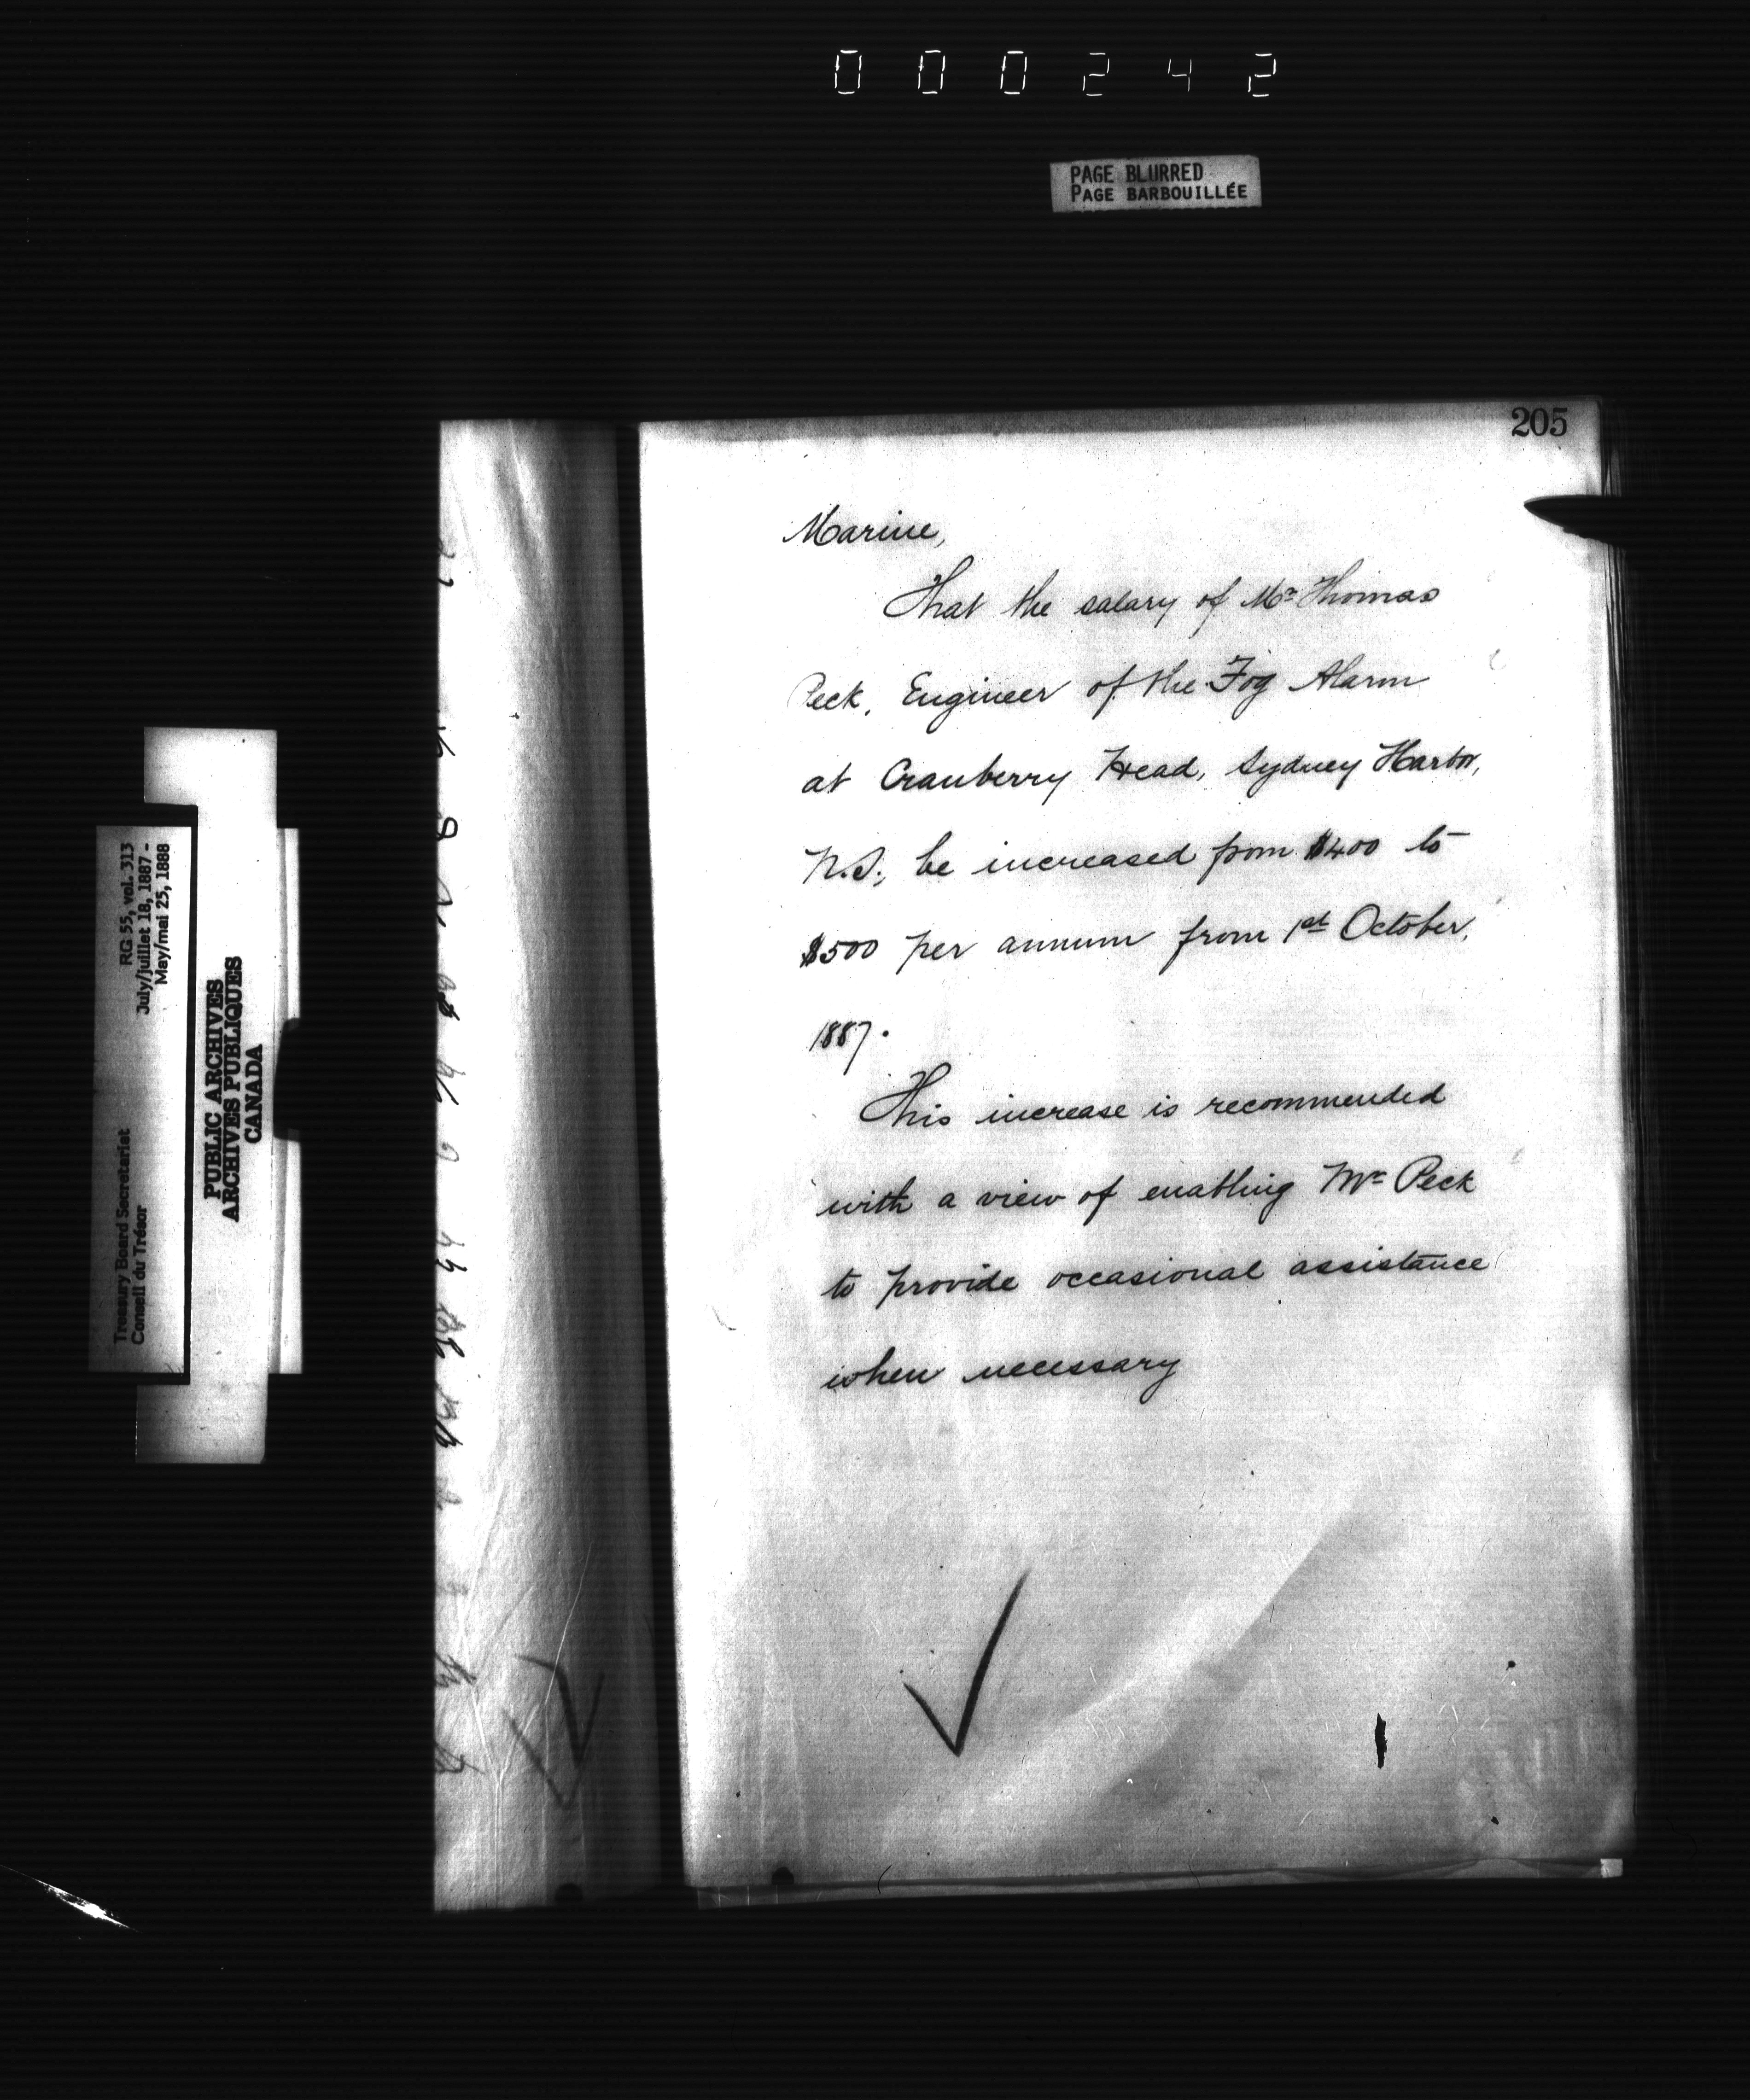 000242
PAGE BLURRED
PAGE BARBOUILLÉE
205
Marine,
That the salary of Mr Thomas
Peck, Engineer of the Fog Alarm
at Cranberry Head, Sydney Harbor,
N.S., be increased from $400 to
$500 per annum from 1st October,
1887.
This increase is recommended
with a view of enabling Mr Peck
to provide occasional assistance
when necessary
RG 55, vol. 313
July/juillet 18, 1887 -
May/mai 25, 1888
Treasury Board Secretariat
Conseil du Trésor
PUBLIC ARCHIVES
ARCHIVES PUBLIQUES
CANADA